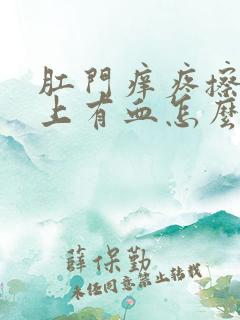 肛門痒疼擦
上有血怎麽
薛保勤
未经同意禁止转载